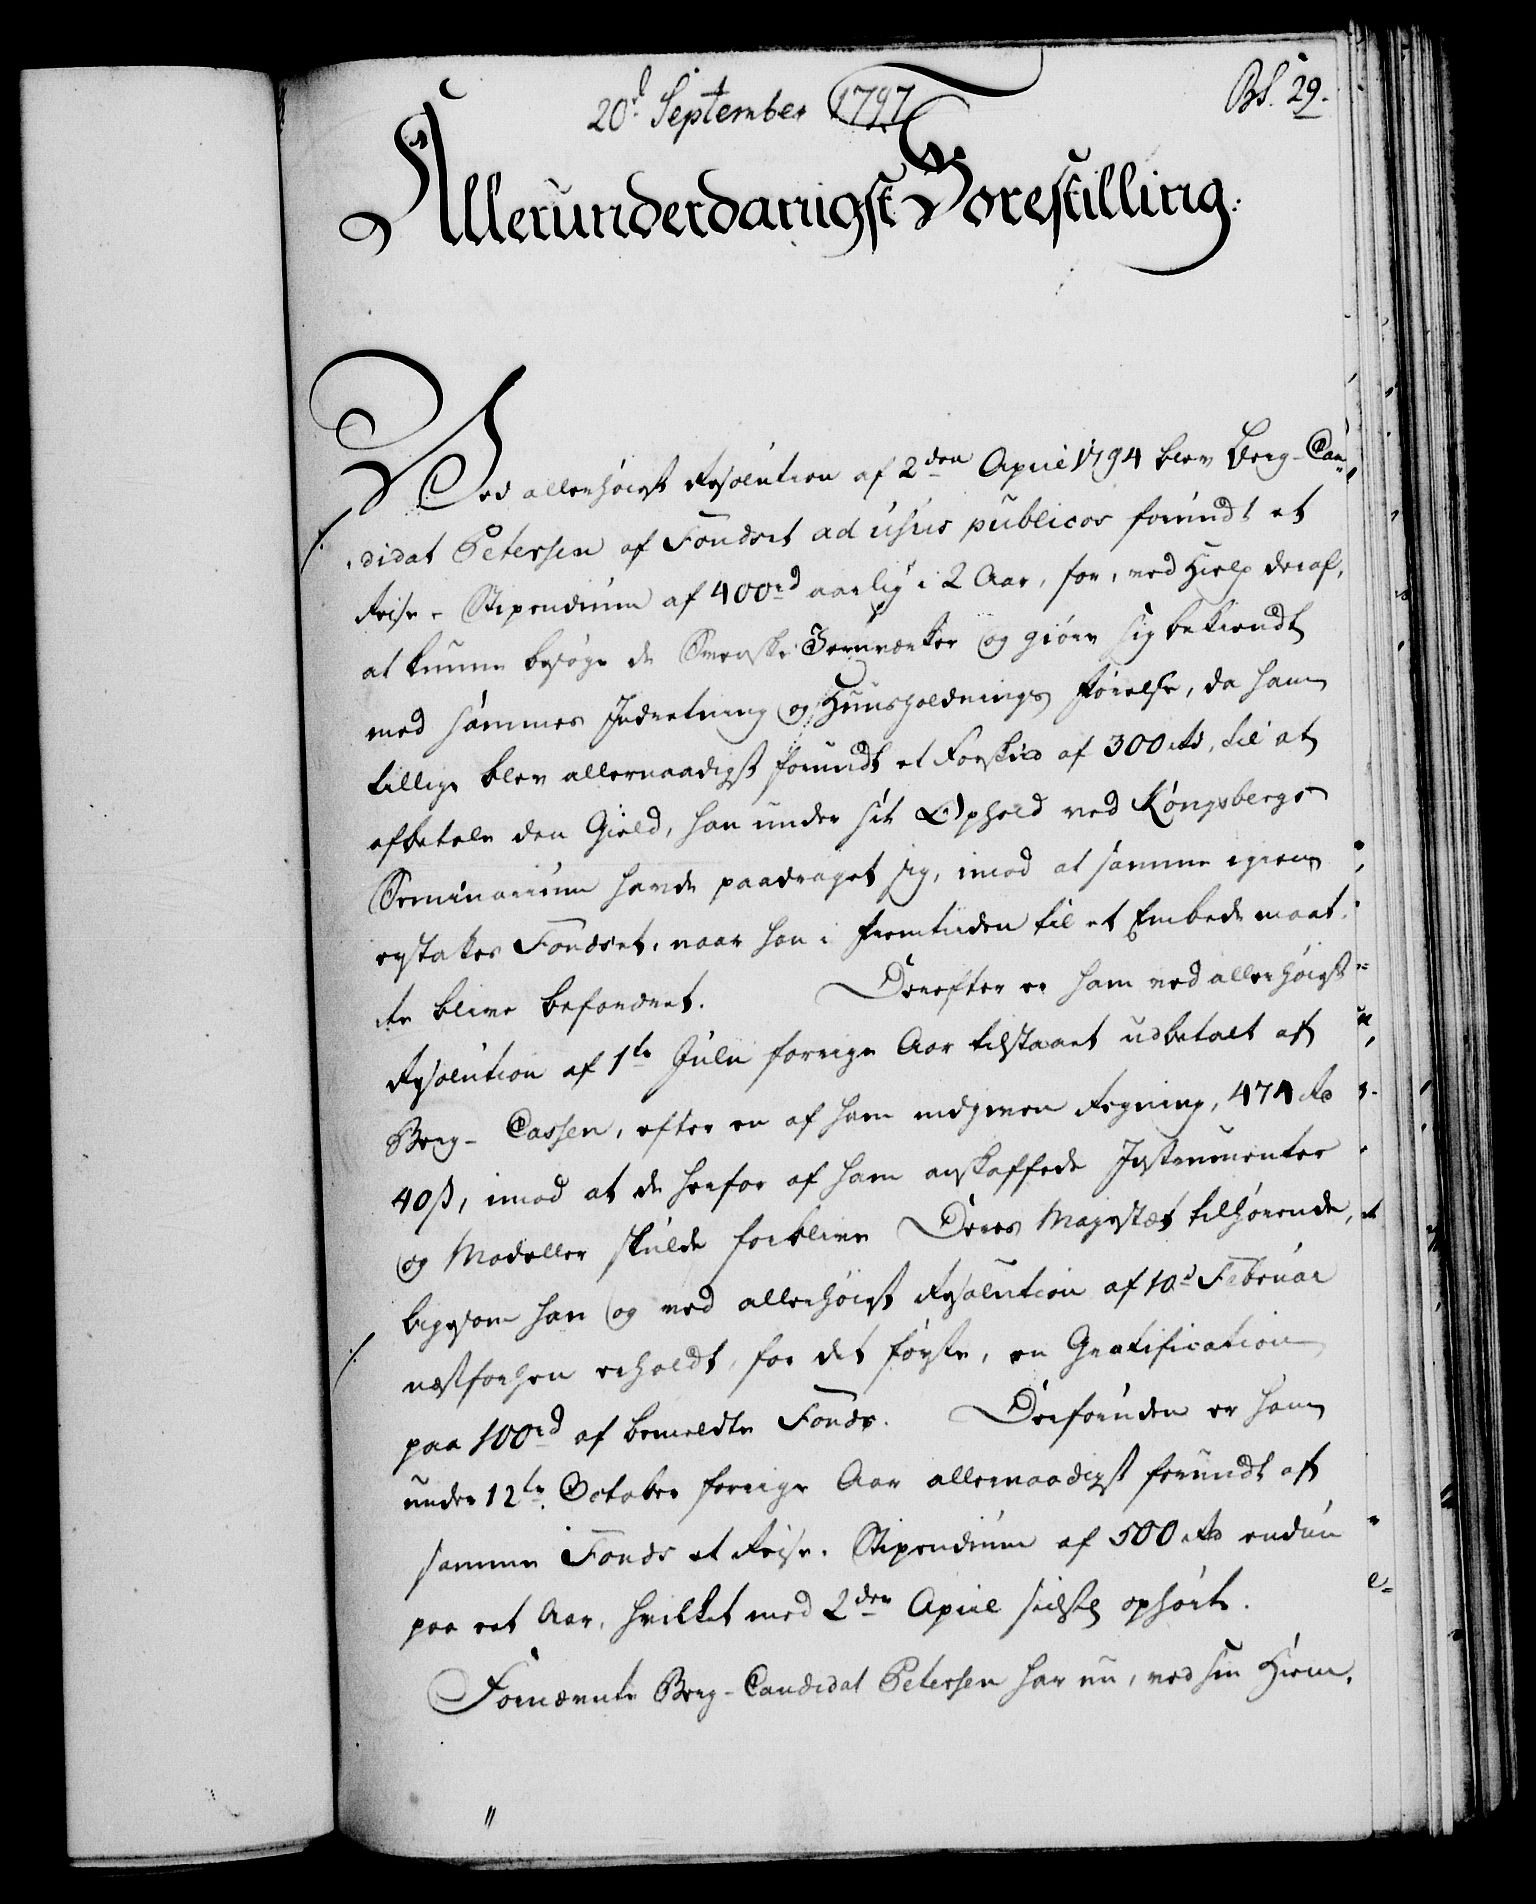 20d September 1797
BS. 29.
Allerunderdanigst Forestilling.
Ved allerhøiest Resolution af 2den April 1794 blev Berg-Can-
didat Petersen af Fondset ad usus publicos forundt et
Reise-Stipendium af 400rd aarlig i 2 Aar, for, ved Hielp deraf,
at kunne besøge de Svenske Jernværker og giøre sig bekiendt
med sammes Indretning og Huusholdnings Førelse, da ham
tillige blev allernaadigst forundt et Forskud af 300 rd, til at
afbetale den Gield, han under sit Ophold ved Kongsbergs
Seminarium havde paadraget sig, imod at samme igien
erstattes Fondset, naar han i Fremtiden til et Embede maat-
te blive befordret. Derefter er ham ved allerhøiest
Resolution af 1te Julii forrige Aar tilstaaet udbetalt af
Berg-Cassen, efter en af ham indgiven Regning, 474 rd
40 ß, imod at de herfor af ham anskaffede Instrumenter
og Modeller skulde forblive Deres Majestæt tilhørende,
ligesom han og ved allerhøiest Resolution af 10d Februar
næstforhen erholdt, for det første, en Gratification
paa 100rd af bemeldte Fonds. Desforuden er ham
under 12te October forrige Aar allernaadigst forundt af
samme Fonds et Reise-Stipendium af 500 rd endnu
paa eet Aar, hvilket med 2den April sidstl ophørte.
Fornævnte Berg-Candidat Petersen har nu, ved sin Hiem-